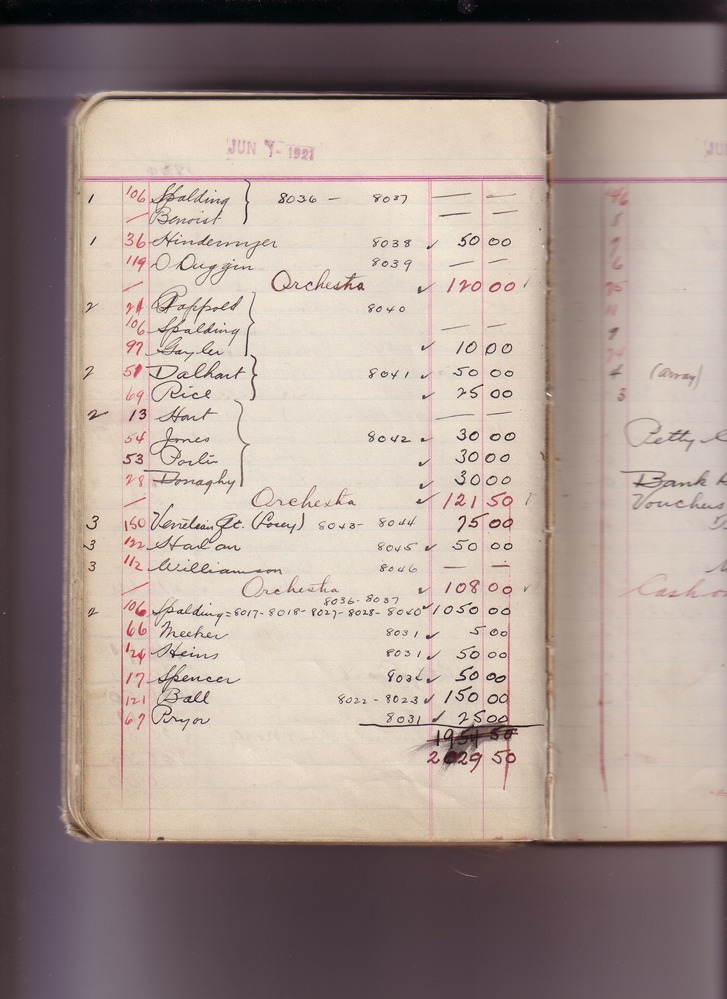 JUN 7 - 1921
1 106 Spalding 8036 - 8037 — —
— Benoist — —
1 36 Hindermyer 8038 ✓ 50 00
119 O Duggin 8039 — —
— Orchestra ✓ 120 00
2 21 Rappold 8040
106 Spalding — —
97 Gayler ✓ 10 00
2 51 Dalhart 8041 ✓ 50 00
69 Rice ✓ 25 00
2 13 Hart — —
54 Jones 8042 ✓ 30 00
53 Porter ✓ 30 00
28 Donaghy ✓ 30 00
— Orchestra ✓ 121 50
3 180 Venetian Qt. (Posey) 8043 - 8044 75 00
3 122 Harlan 8045 ✓ 50 00
3 112 Williamson 8046 — —
— Orchestra ✓ 108 00
8036 - 8037
2 106 Spalding - 8017 - 8018 - 8027 - 8028 - 8040 ✓ 1050 00
66 Meeker 8031 ✓ 5 00
124 Heins 8031 ✓ 50 00
17 Spencer ✓ 50 00
121 Ball 8022 - 8023 ✓ 150 00
67 Pryor 8031 ✓ 25 00
1954 50
2029 50
(away)
3
Petty
Bank
Vouchers
Cash on